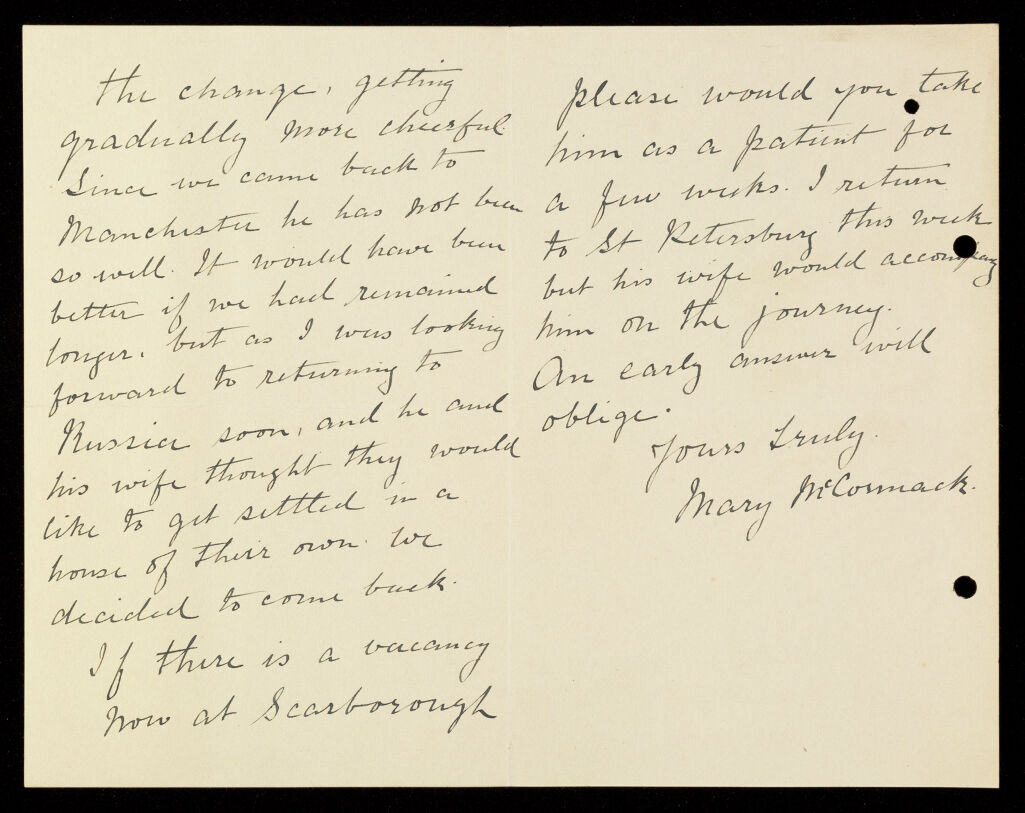 the change, getting
gradually more cheerful.
Since we came back to
Manchester he has not been
so well. It would have been
better if we had remained
longer, but as I was looking
forward to returning to
Russia soon, and he and
his wife thought they would
like to get settled in a
house of their own. we
decided to come back.
If there is a vacancy
now at Scarborough
please would you take
him as a patient for
a few weeks. I return
to St Petersburg this week
but his wife would accompany
him on the journey.
An early answer will
oblige.
Yours truly.
Mary McCormack.